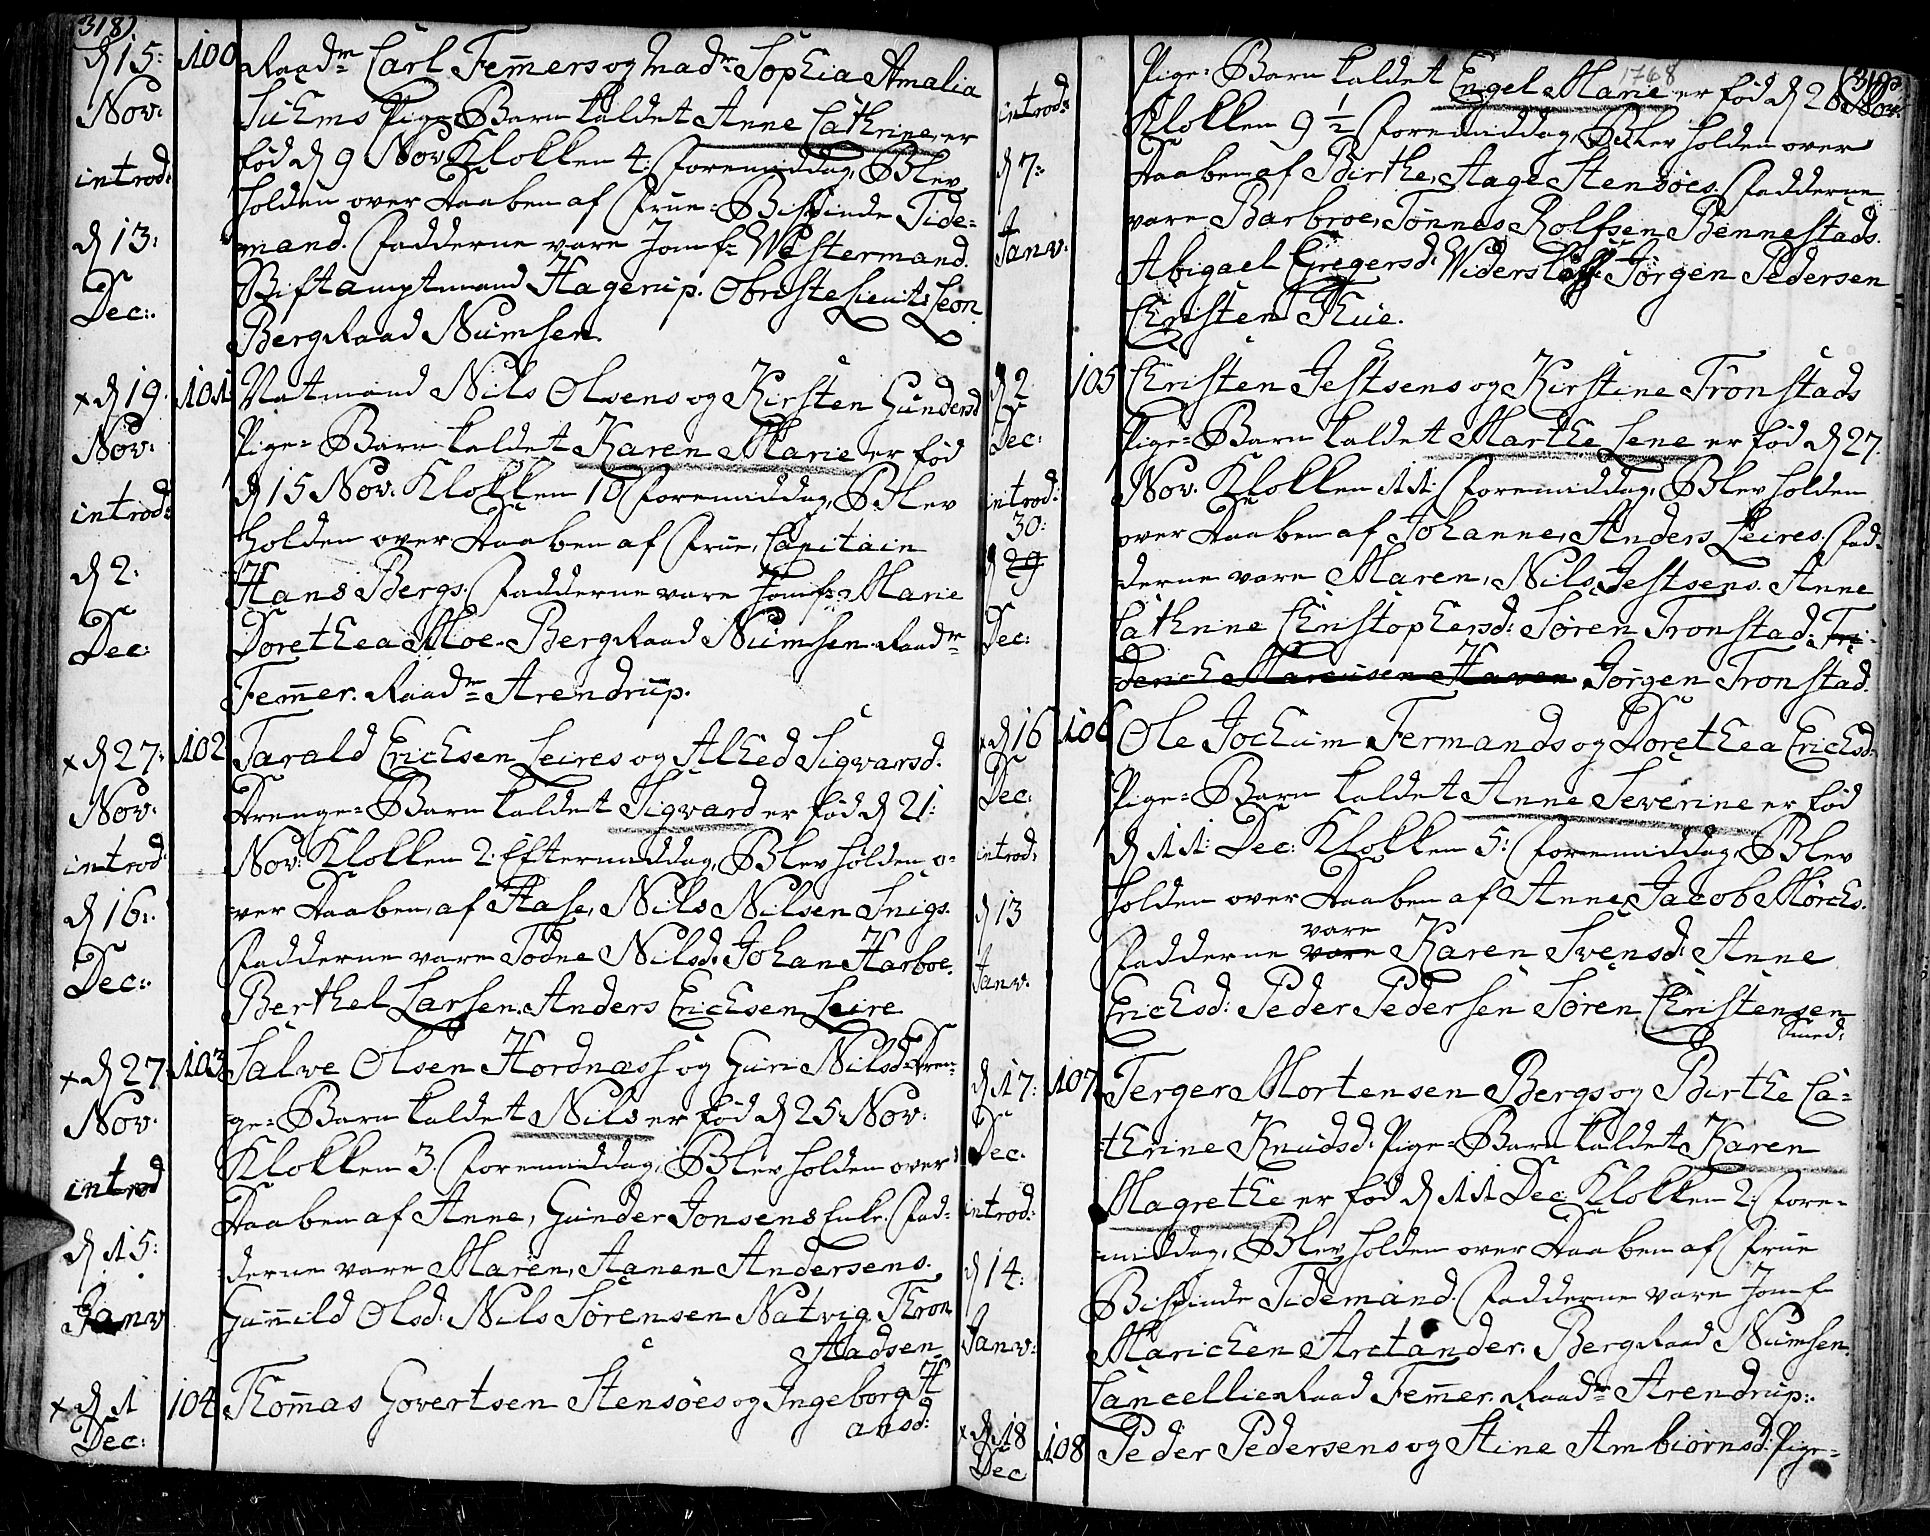 318)
d 15: 100 Raadm Carl Femmers og Madm Sophia Amalia
Nov: Suhms Pige-Barn kaldet Anne Cathrine, er
introd: fød d 9 Nov. Klokken 4: Formiddag, Blev
holden over Daaben af Frue-Bispinde Tide-
d 13: mand. Fadderne vare Jomf: Westermand.
Dec: Stiftamptmand Hagerup. Obristelieut: Leon
BergRaad Numsen.
x d 19. 101 Natmand Nils Olsens og Kirsten Gundersd
Nov: Pige-Barn kaldet Karen Marie er fød
introd: d 15 Nov. Klokken 10 Foremiddag, Blev
holden over Daaben af Frue, Capitain
d 2: Hans Bergs. Fadderne vare Jomf: Marie
Dec: Dorethea Moe. BergRaad Numsen. Raadm
Femmer. Raadm Arendrup.
x d 27: 102 Tarald Erichsen Leires og Alhed Sigvarsd.
Nov: Drenge-Barn kaldet Sigvard er fød d 21:
introd: Nov: Klokken 2: Eftermiddag, Blev holden o-
d 16: ver Daaben, af Aase, Nils Nilsen Snigs.
Fadderne vare Todne Nilsd: Johan Harboe.
Dec: Berthel Larsen. Anders Erichsen Leire
x d 27 103 Salve Olsen Hordnæss og Guri Nilsd: Dren-
Nov: ge-Barn kaldet Nils er fød d 25 Nov:
Klokken 3. Foremiddag, Blev holden over
introd Daaben af Anne, Gunder Jonsens Enke. Fad-
d 15: derne vare Maren, Aanen Andersens.
Janv Gunnild Olsd: Nils Sørensen Natvig. Thron
Aadsen.
x d 1 104 Thommas Govertsen Stensöes og Ingeborg H
Dec: ansd:
1768
(319
Pige-Barn kaldet Engel Marie er fød d 28 Nov.
introd: Klokken 9 1/2 Foremiddag, Blev holden over
d 7: Daaben af Birthe, Aage Stensöes. Fadderne
vare Barbroe, Tønnes Rolfsen Bennestads.
Janv: Abigael Gregersd: Jørgen Pedersen
Christen Thue.
d 2 105 Christen Jestsens og Kirstine Tronstads
Dec: Pige-Barn kaldet Marthe Lene er fød d 27.
introd: Nov. Klokken 11: Foremiddag, Blev holden
30: over Daaben af Johanne, Anders Leires. Fad-
d 29 derne vare Maren, Nils Jestsens. Anne
Dec: Cathrine Christophersd: Søren Tronstad. Fri-
derich Marcusen Haven. Jørgen Tronstad.
x d 16 106 Ole Jochum Fermands og Dorethea Erichsd:
Dec: Pige-Barn kaldet Anne Severine er fød
introd: d 11: Dec: Klokken 5: Foremiddag, Blev
d 13 holden over Daaben af Anne, Jacob Mørchs.
vare
Fadderne vare Karen Svensd: Anne
Janv: Erichsd: Peder Pedersen Søren Christensen
Smed:
d 17: 107 Terger Mortensen Bergs og Birthe Ca-
Dec: thrine Knudsd: Pige-Barn kaldet Karen
introd: Magrethe er fød d 11 Dec: Klokken 2: Fore-
middag, Blev holden over Daaben af Frue
d 14: Bispinde Tidemand. Fadderne vare Jomf:
Janv: Marichen Arctander. BergRaad Numsen.
CancellieRaad Femmer. Raadm Arendrup:
x d 18 108 Peder Pedersens og Stine Ambiørnsd: Pige-
Dec